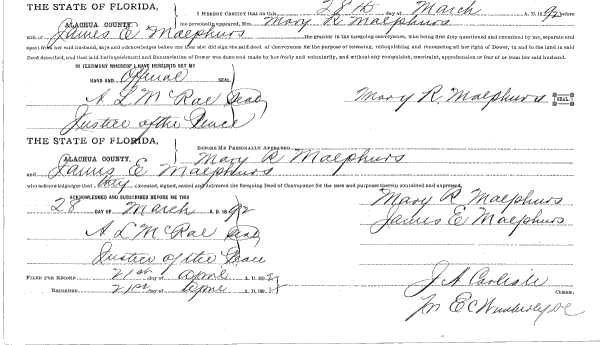 THE STATE OF FLORIDA,
ALACHUA COUNTY.
I HEREBY CERTIFY that on this 28th day of March A. D. 1892 before
me personally appeared, Mrs. Mary R Malphurs
wife of James E Malphurs, the grantor in the foregoing conveyance, who being first duly questioned and examined by me, separate and
apart from her said husband, says and acknowledges before me that she did sign the said deed of Conveyance for the purpose of releasing, relinquishing and renouncing all her right of Dower, in and to the land in said
Deed described, and that said Relinquishment and Renunciation of Dower was done and made by her freely and voluntarily, and without any compulsion, constraint, apprehension or fear of or from her said husband.
IN TESTIMONY WHEREOF I HAVE HEREUNTO SET MY
HAND AND Official SEAL
A L McRae Seal
Mary R. Malphurs SEAL
Justice of the Peace
THE STATE OF FLORIDA,
ALACHUA COUNTY.
BEFORE ME PERSONALLY APPEARED
Mary R Malphurs
and James E Malphurs
who acknowledges that they executed, signed, sealed and delivered the foregoing Deed of Conveyance for the uses and purposes therein contained and expressed.
ACKNOWLEDGED AND SUBSCRIBED BEFORE ME THIS
28 DAY OF March A. D. 1892
Mary R Malphurs
James E Malphurs
A L McRae Seal
Justice of the Peace
FILED FOR RECORD 21st day of April A. D. 1892
RECORDED 21st day of April A. D. 1892
J A Carlisle
CLERK.
Wimberly DC